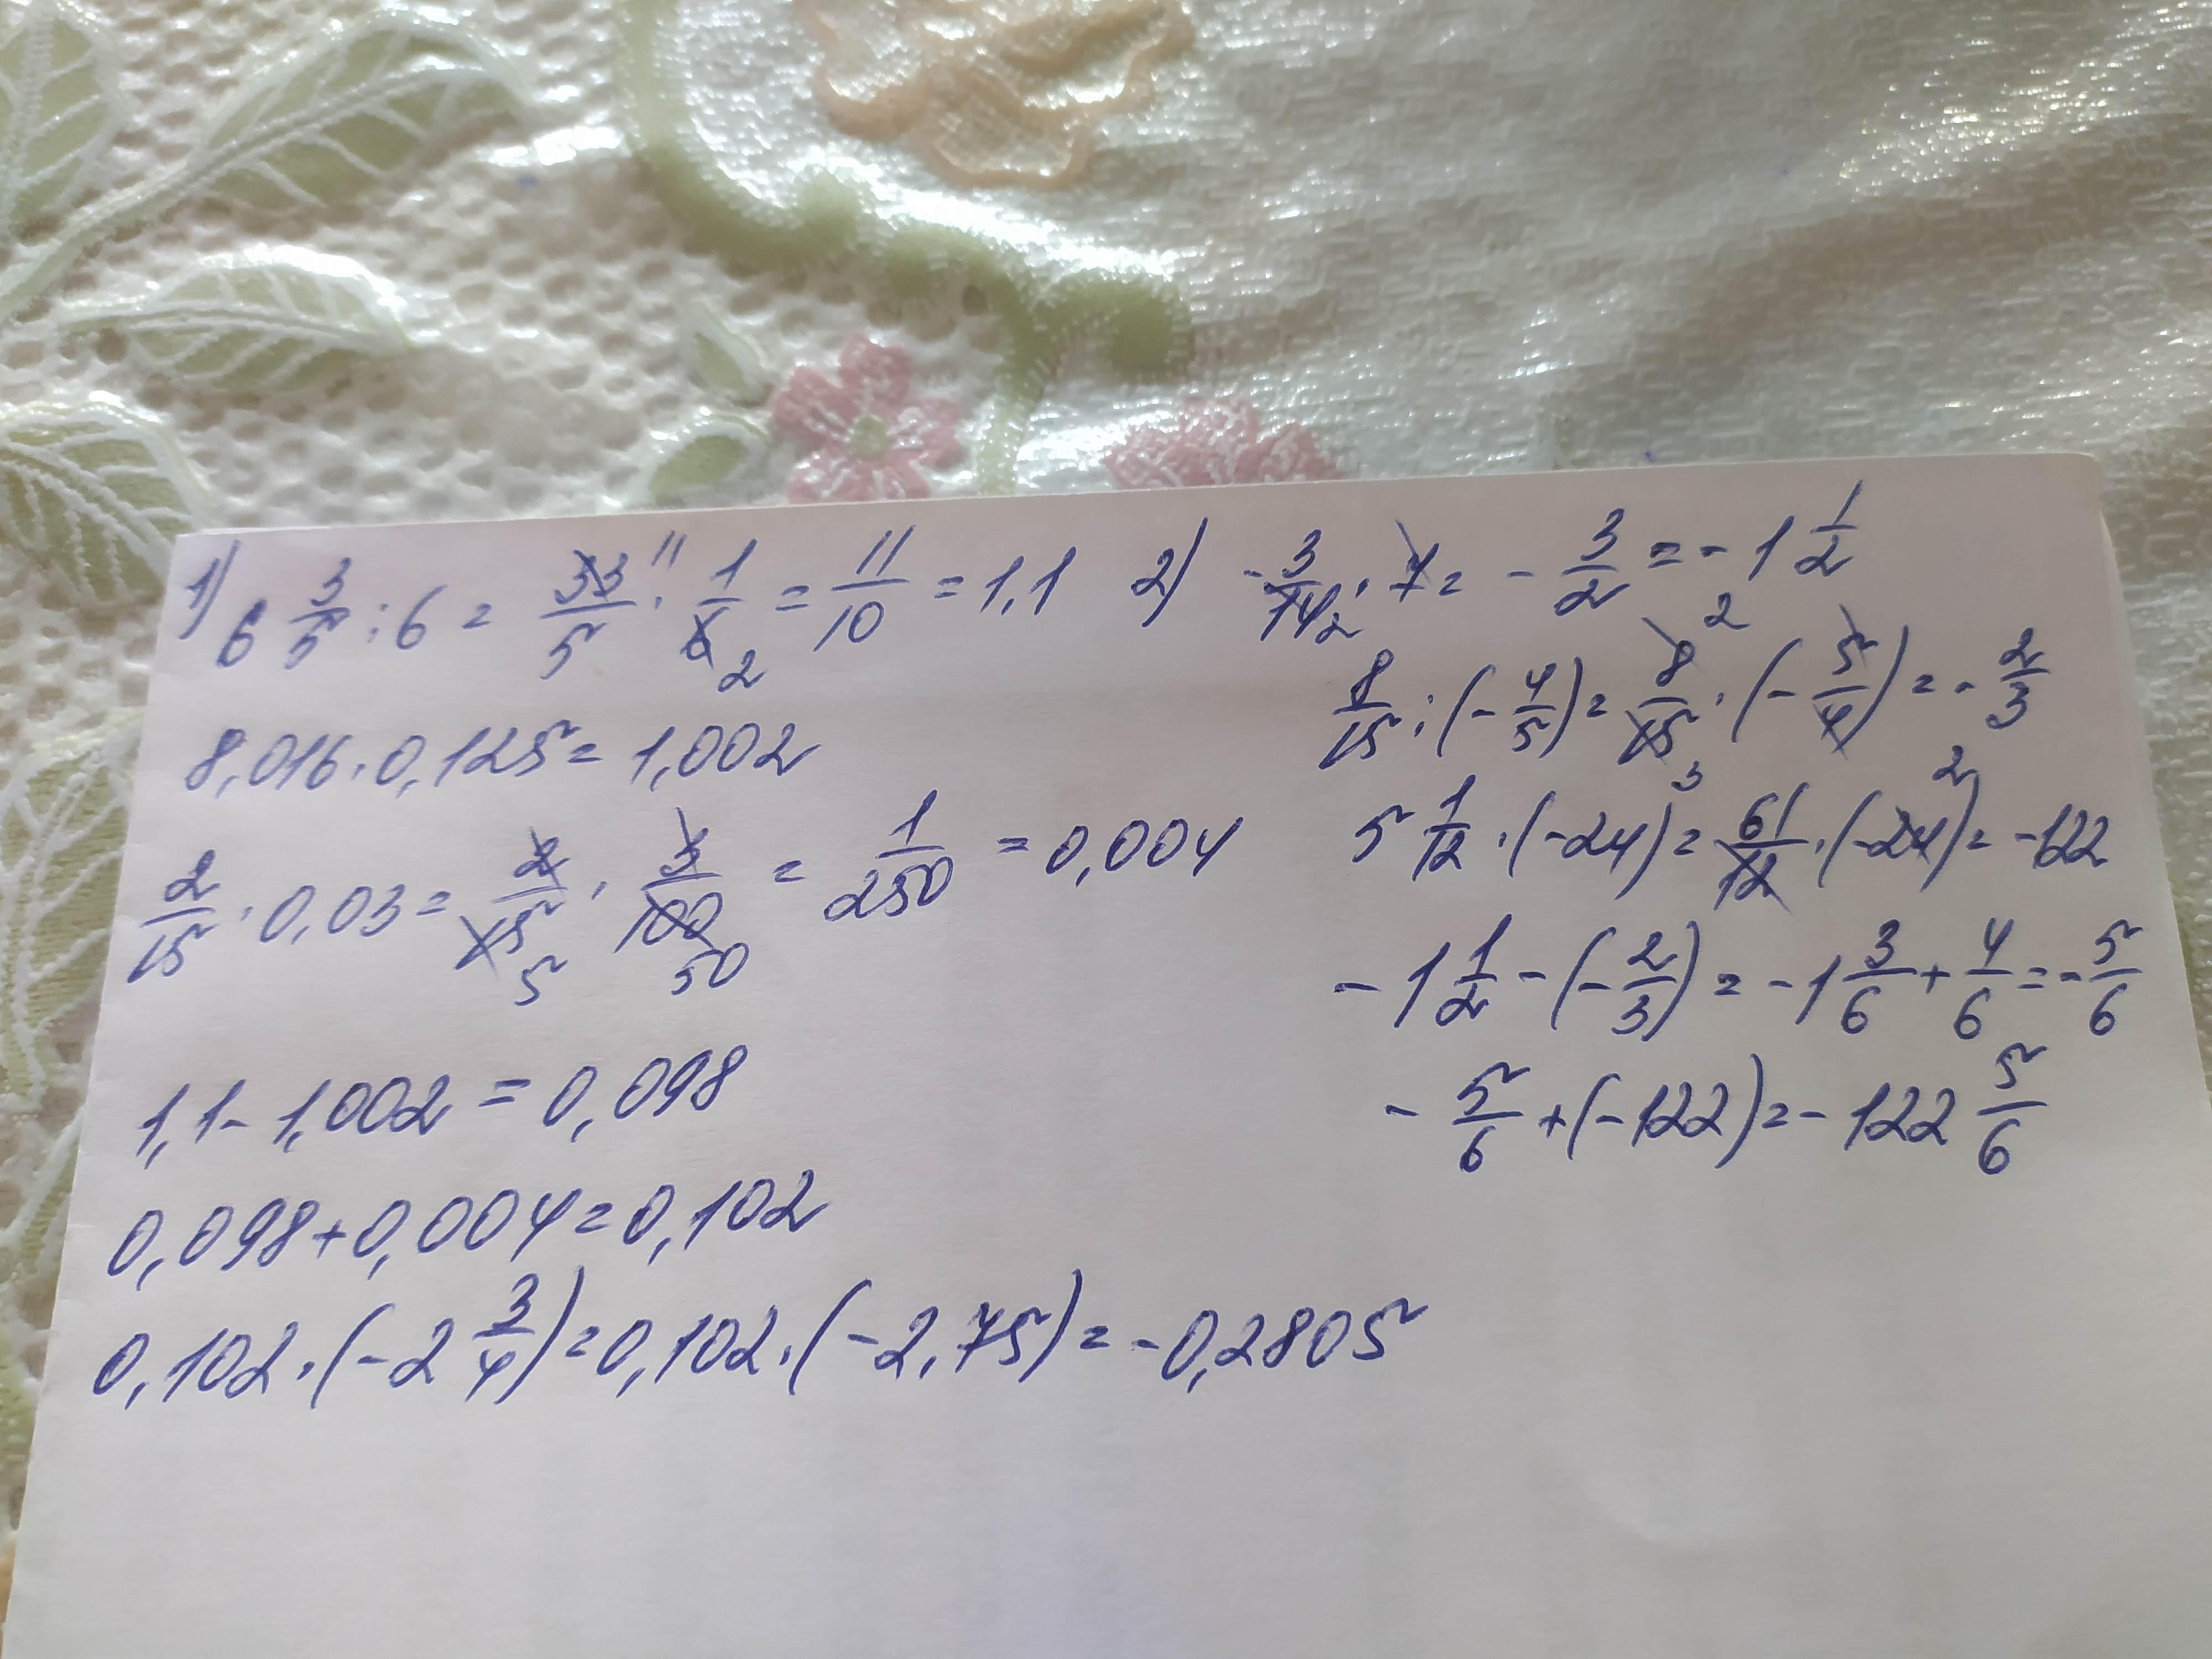 1) 6 3/5 : 6 = 33/5 · 1/6 = 11/10 = 1,1
8,016 · 0,125 = 1,002
2/15 · 0,03 = 2/15 · 3/100 = 1/250 = 0,004
1,1 - 1,002 = 0,098
0,098 + 0,004 = 0,102
0,102 · (-2 3/4) = 0,102 · (-2,75) = -0,2805
2) -3/14 · 7 = -3/2 = -1 1/2
8/15 : (-4/5) = 8/15 · (-5/4) = -2/3
5 1/12 · (-24) = 61/12 · (-24) = -122
-1 1/2 - (-2/3) = -1 3/6 + 4/6 = -5/6
-5/6 + (-122) = -122 5/6